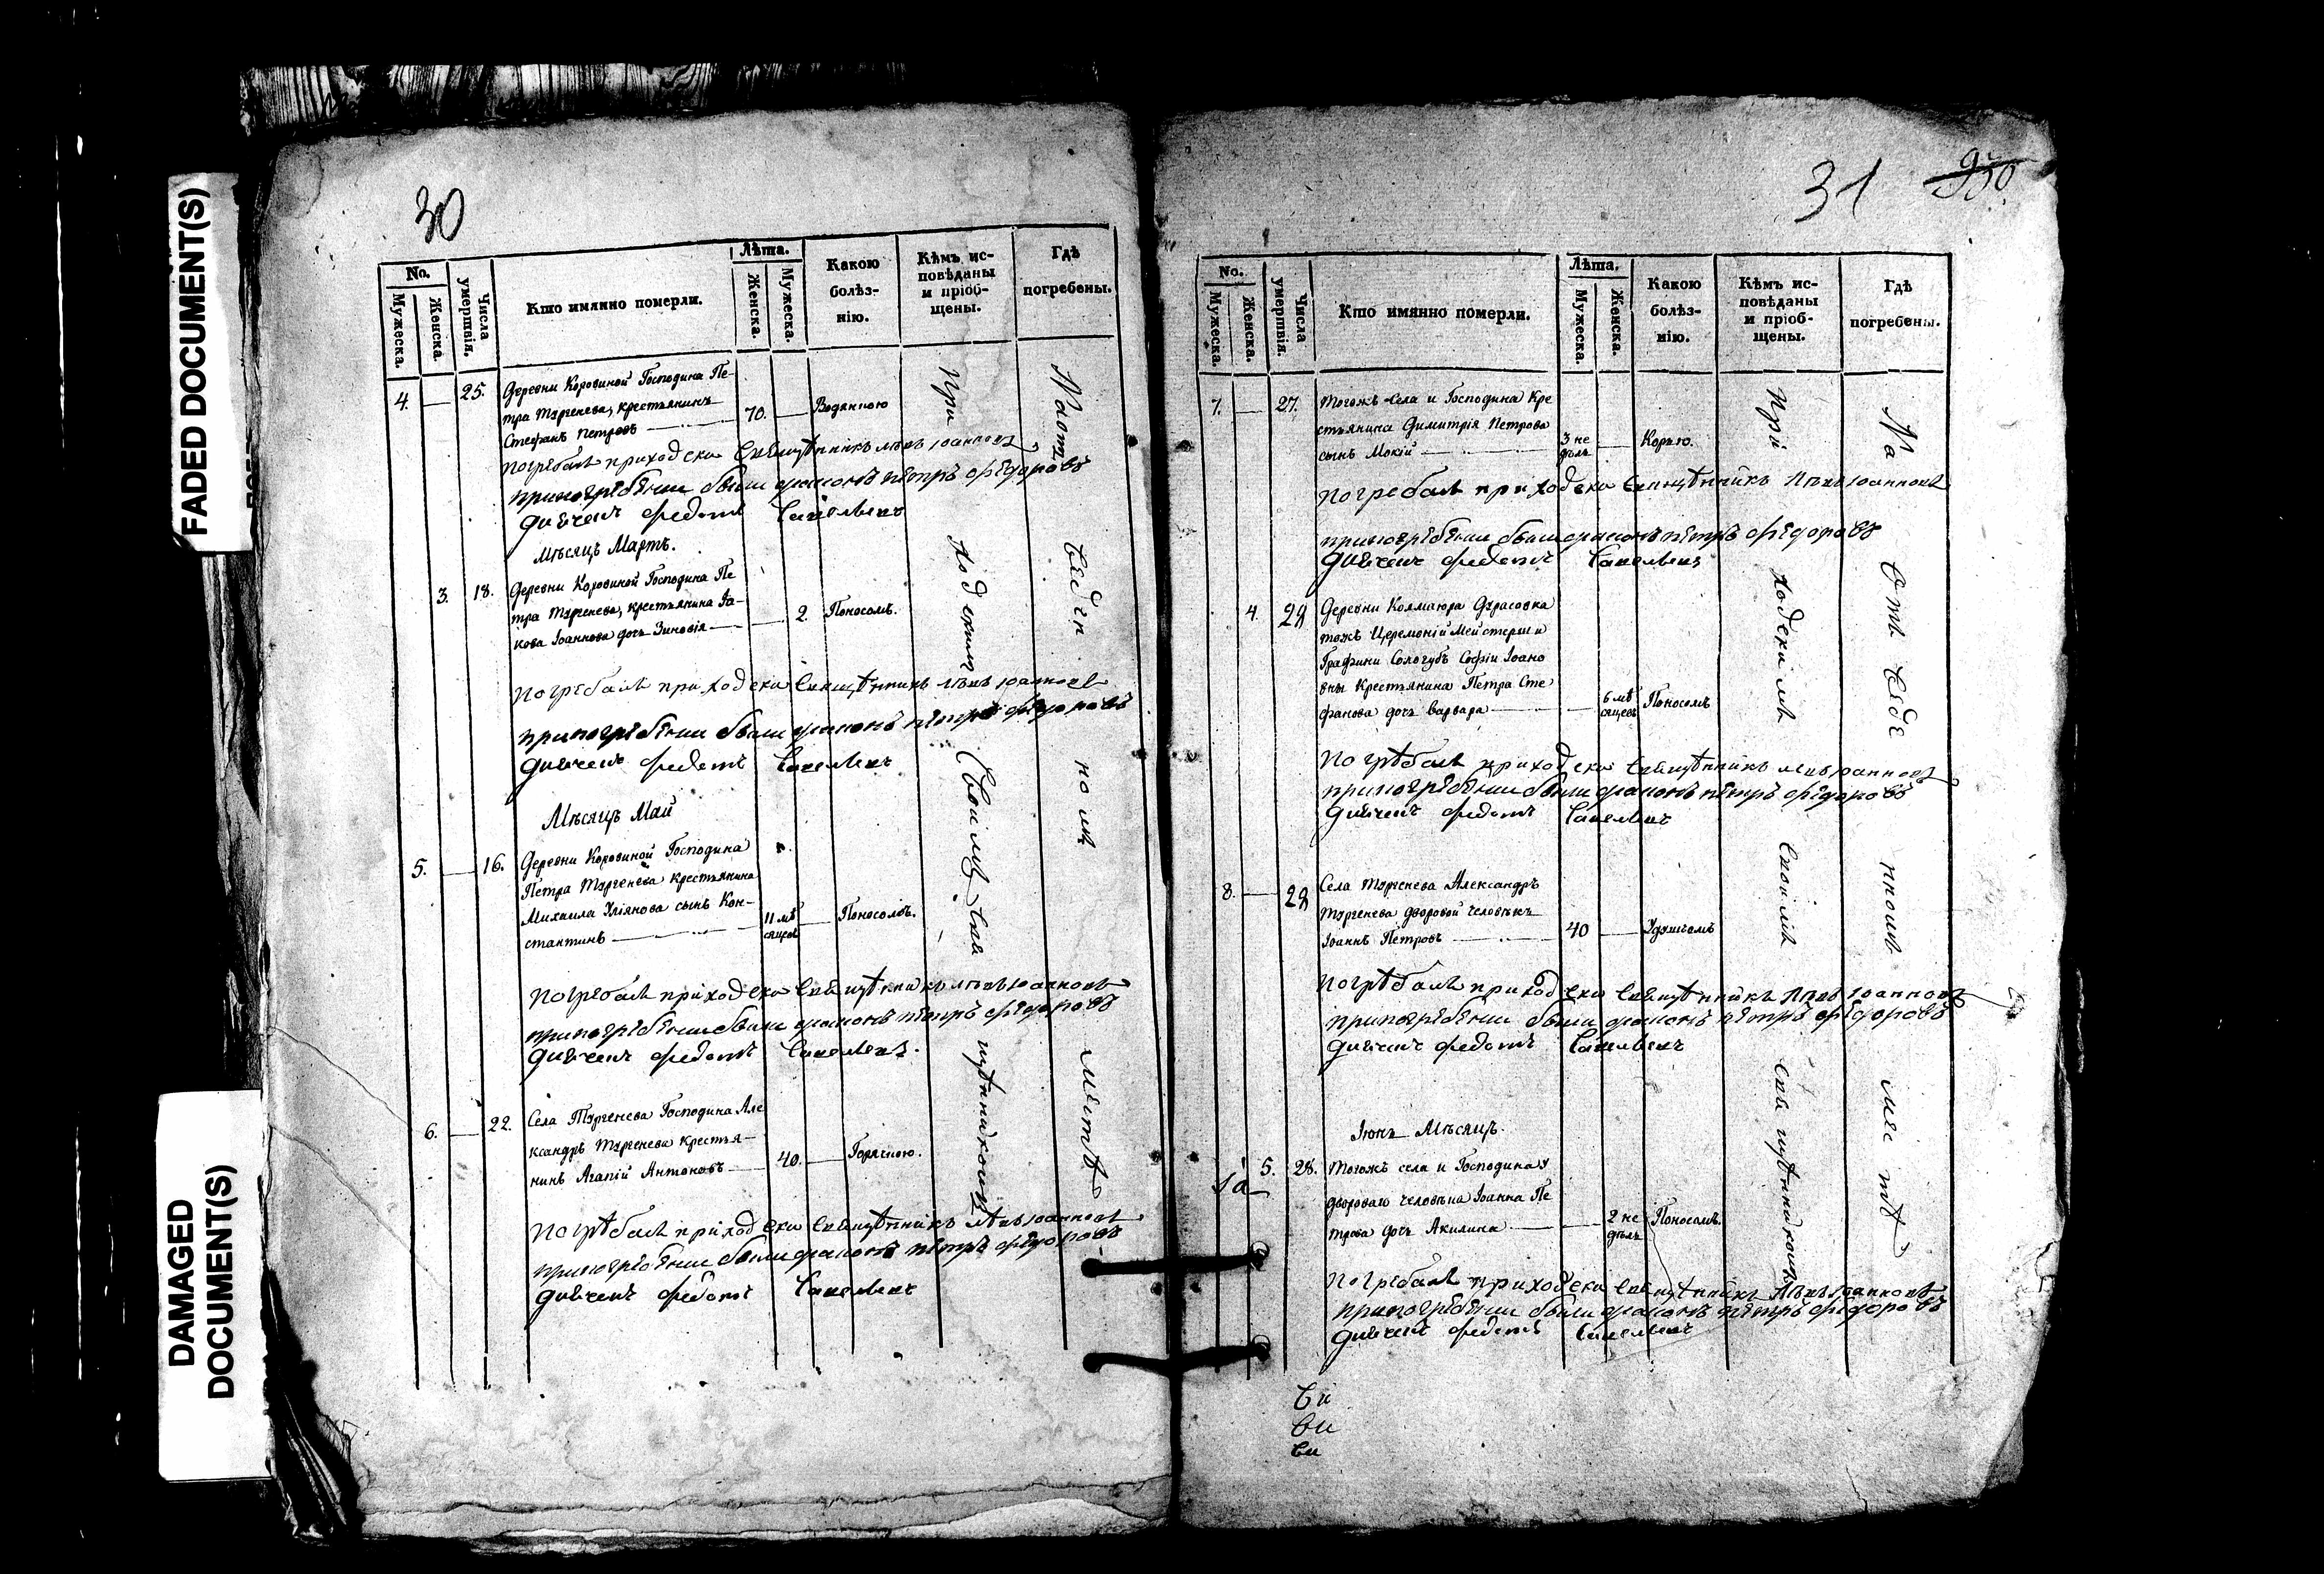 FADED DOCUMENT(S)
DAMAGED
DOCUMENT(S)
30
No.
Мужеска.
Женска.
Числа
умертвія.
Кто имянно померли.
Лѣта.
Женска.
Мужеска.
Какою
болѣз-
нію.
Кѣмъ ис-
повѣданы
и пріоб-
щены.
Гдѣ
погребены.
4. — 25. Деревни Коровиной Господина Пе-
тра Тургенева, крестьянинъ
Стефанъ Петровъ — 70. — Водяною
погребалъ приходски священникъ левъ іоанновъ
припогребении были диаконъ петръ федоровъ
дьячекъ федотъ савельевъ
Мѣсяцъ Мартъ.
3. 18. Деревни Коровиной Господина Пе-
тра Тургенева, крестьянина Іа-
кова Іоаннова дочь Зиновія — — 2. Поносомъ.
погребалъ приходски священникъ левъ іоанновъ
припогребении были диаконъ петръ федоровъ
дьячекъ федотъ савельевъ
Мѣсяцъ Май
5. — 16. Деревни Коровиной Господина
Петра Тургенева крестьянина
Михаила Уліянова сынъ Кон-
стантинъ — 11 мѣ
сяцевъ — Поносомъ.
погребалъ приходски священникъ левъ іоанновъ
припогребении были диаконъ петръ федоровъ
дьячекъ федотъ савельевъ.
6. — 22. Села Тургенева Господина Але
ксандръ Тургенева крестья-
нинъ Агапій Антоновъ — 40. — Горячкою.
погрѣбалъ приходски священникъ левъ іоанновъ
припогребении были диаконъ петръ федоровъ
дьячекъ федотъ савельевъ
При
ходскимъ
своимъ свя
щѣнникомъ
На от
веден
номъ
местѣ
31
950
No.
Мужеска.
Женска.
Числа
умертвія.
Кто имянно померли.
Лѣта.
Мужеска.
Женска.
Какою
болѣз-
нію.
Кѣмъ ис-
повѣданы
и пріоб-
щены.
Гдѣ
погребены.
7. — 27. Тогожъ села и Господина Кре
стьянина Димитрія Петрова
сынъ Мокій — 3 не
дѣль — Корью.
погребалъ приходски священникъ левъ іоанновъ
припогребении были диаконъ петръ федоровъ
дьячекъ федотъ савельевъ
4. 29 Деревни Колмаюра Дурасовка
тожъ Церемоній Мейстерши
Графини Сологубъ Софіи Іоано
вны Крестьянина Петра Сте
фанова дочь Варвара — — 6 мѣ
сяцевъ Поносомъ
погрѣбалъ приходски священникъ левъ іоанновъ
припогребении были диаконъ петръ федоровъ
дьячекъ федотъ савельевъ
8. — 29 Села Тургенева Александръ
Тургенева дворовой человѣкъ
Іоаннъ Петровъ — 40 — Удушьемъ
погрѣбалъ приходски священникъ левъ іоанновъ
припогребении были диаконъ петръ федоровъ
дьячекъ федотъ савельевъ
Іюнь Мѣсяцъ.
5. 28. Тогожъ села и Господина
двороваго человѣка Іоанна Пе
трова дочь Акилина — — 2 не
дѣль Поносомъ.
погребалъ приходски священникъ левъ іоанновъ
припогребении были диаконъ петръ федоровъ
дьячекъ федотъ савельевъ
При
ходскимъ
своимъ
священникомъ
На
отведе
нномъ
местѣ